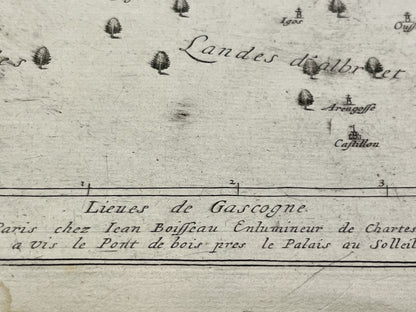 Igos
Ous
Landes d'albret
des
Arengosse
Castillou
1 2 3
Lieues de Gascogne
Paris chez Iean Boisseau Enlumineur de Chartes
a vis le Pont de bois pres le Palais au Solleil